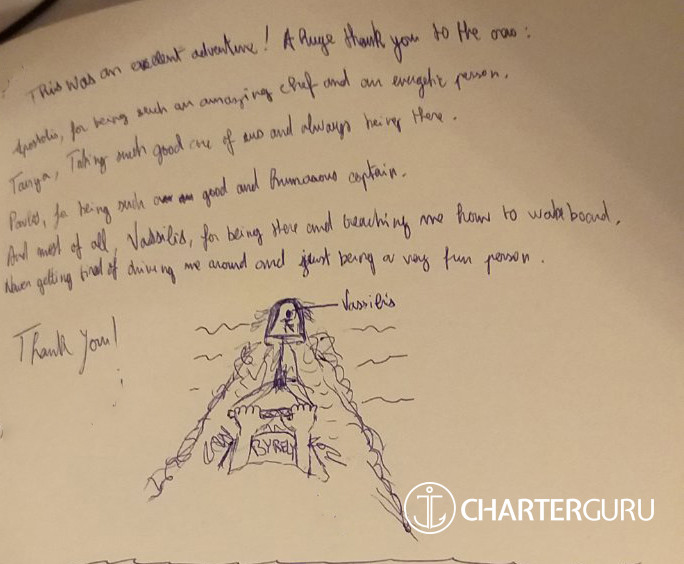 This was an excellent adventure! A huge thank you to the crew:
Apostolis, for being such an amazing chef and an energetic person.
Tanya, Taking such good care of us and always being there.
Pavlos, for being such good and humourous captain.
And most of all, Vassilis, for being there and teaching me how to wakeboard,
Never getting tired of driving me around and just being a very fun person.
Vassilis
Thank You!
CHARTERGURU